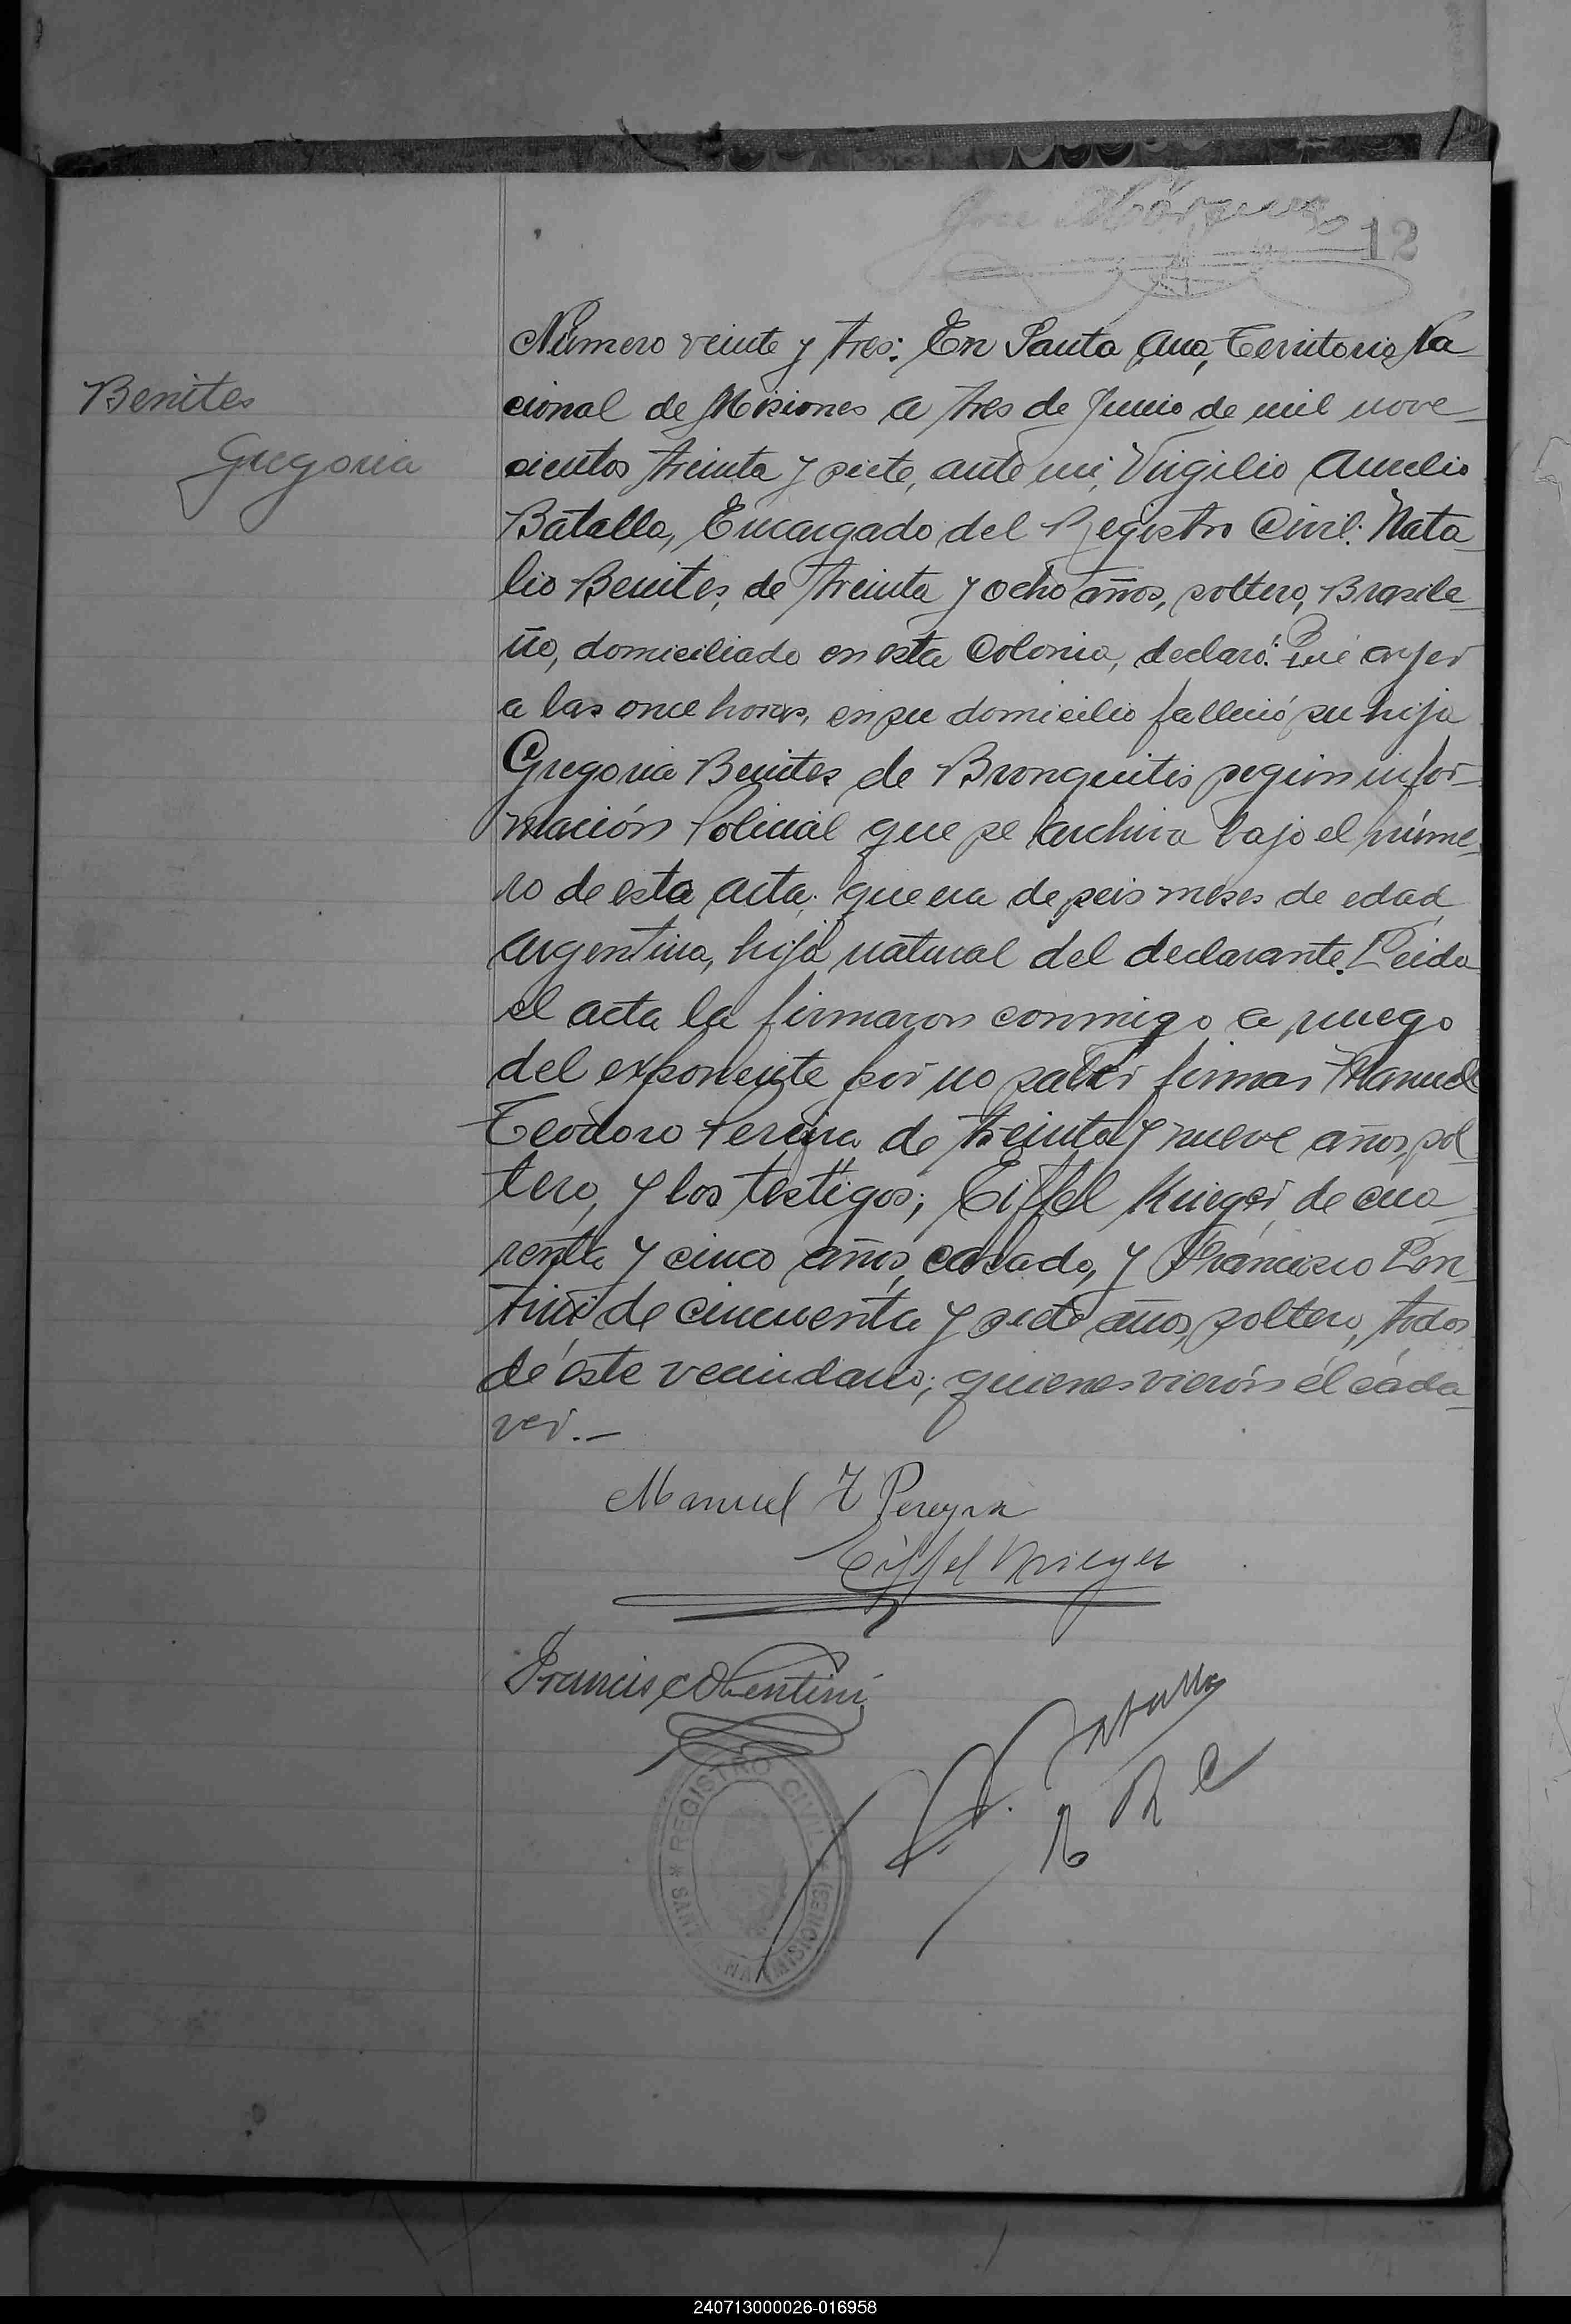 12
Benites
Gregoria
Número veinte y tres: En Santa Ana, Territorio Na
cional de Misiones a tres de Junio de mil nove
cientos treinta y siete, ante mi, Virgilio Aurelio
Batalla, Encargado del Registro Civil: Nata
lio Benites, de treinta y ocho años, soltero, Brasile
ño, domiciliado en esta Colonia, declaró: Qué ayer
a las once horas, en su domicilio falleció su hija
Gregoria Benites de Bronquitis segun infor
mación Policial que se archiva bajo el núme
ro de esta acta; que era de seis meses de edad,
argentina, hija natural del declarante. Leida
el acta la firmaron conmigo a ruego
del exponente por no saber firmar Manuel
Teodoro Pereira de treinta y nueve años, sol
tero, y los testigos; Eiffel Krieger, de cua
renta y cinco años, casado, y Francisco
de cincuenta y siete años, soltero, todos
de este vecindario; quienes vieron él cada
ver.—
Manuel T Pereyra
Eiffel Krieger
Francisco
V. Batalla
E R C
REGISTRO CIVIL
SANTA ANA (MISIONES)
240713000026-016958